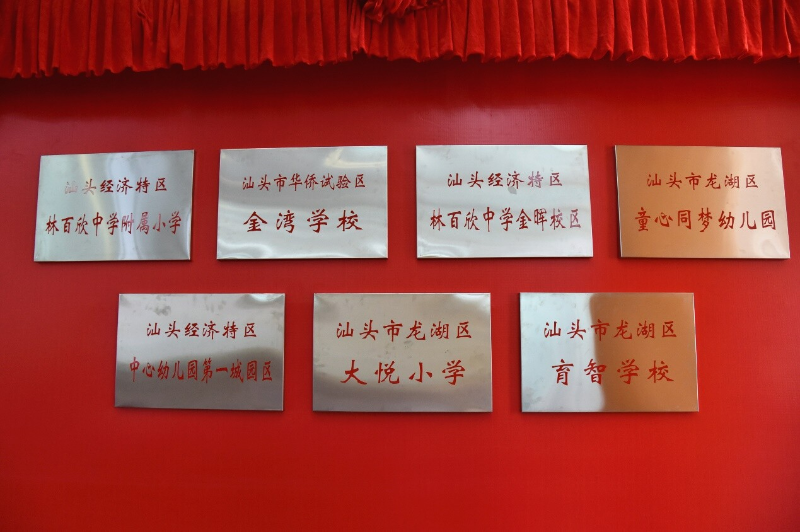 汕头经济特区
林百欣中学附属小学
汕头市华侨试验区
金湾学校
汕头经济特区
林百欣中学金晖校区
汕头市龙湖区
童心同梦幼儿园
汕头经济特区
中心幼儿园第一城园区
汕头市龙湖区
大悦小学
汕头市龙湖区
育智学校